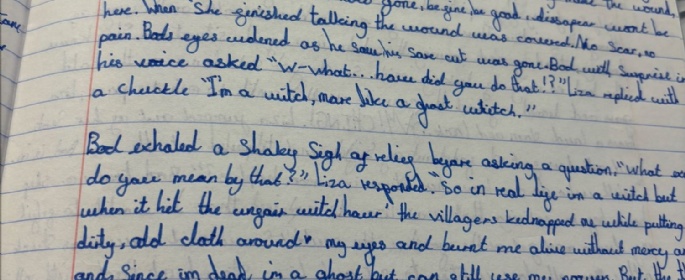 gone, be gine, be good, dissapear wont be
here. When She ginished talking the wound was covered. No Scar, no
pain. Bods eyes widened as he saw his save cut was gone. Bod with Surprise in
his voice asked "W-what... how did you do that!?" Liza replied with
a chuckle "I'm a witch, more like a gost witch."
Bod exhaled a Shaky Sigh of relief before asking a question. "What
do you mean by that?" Liza responded. "So in real life im a witch but
when it hit the unfair witch hour the villagers kidnapped me while putting
dirty, old cloth around my eyes and burnt me alive without mercy
and Since im dead, im a ghost but can still use my But, the